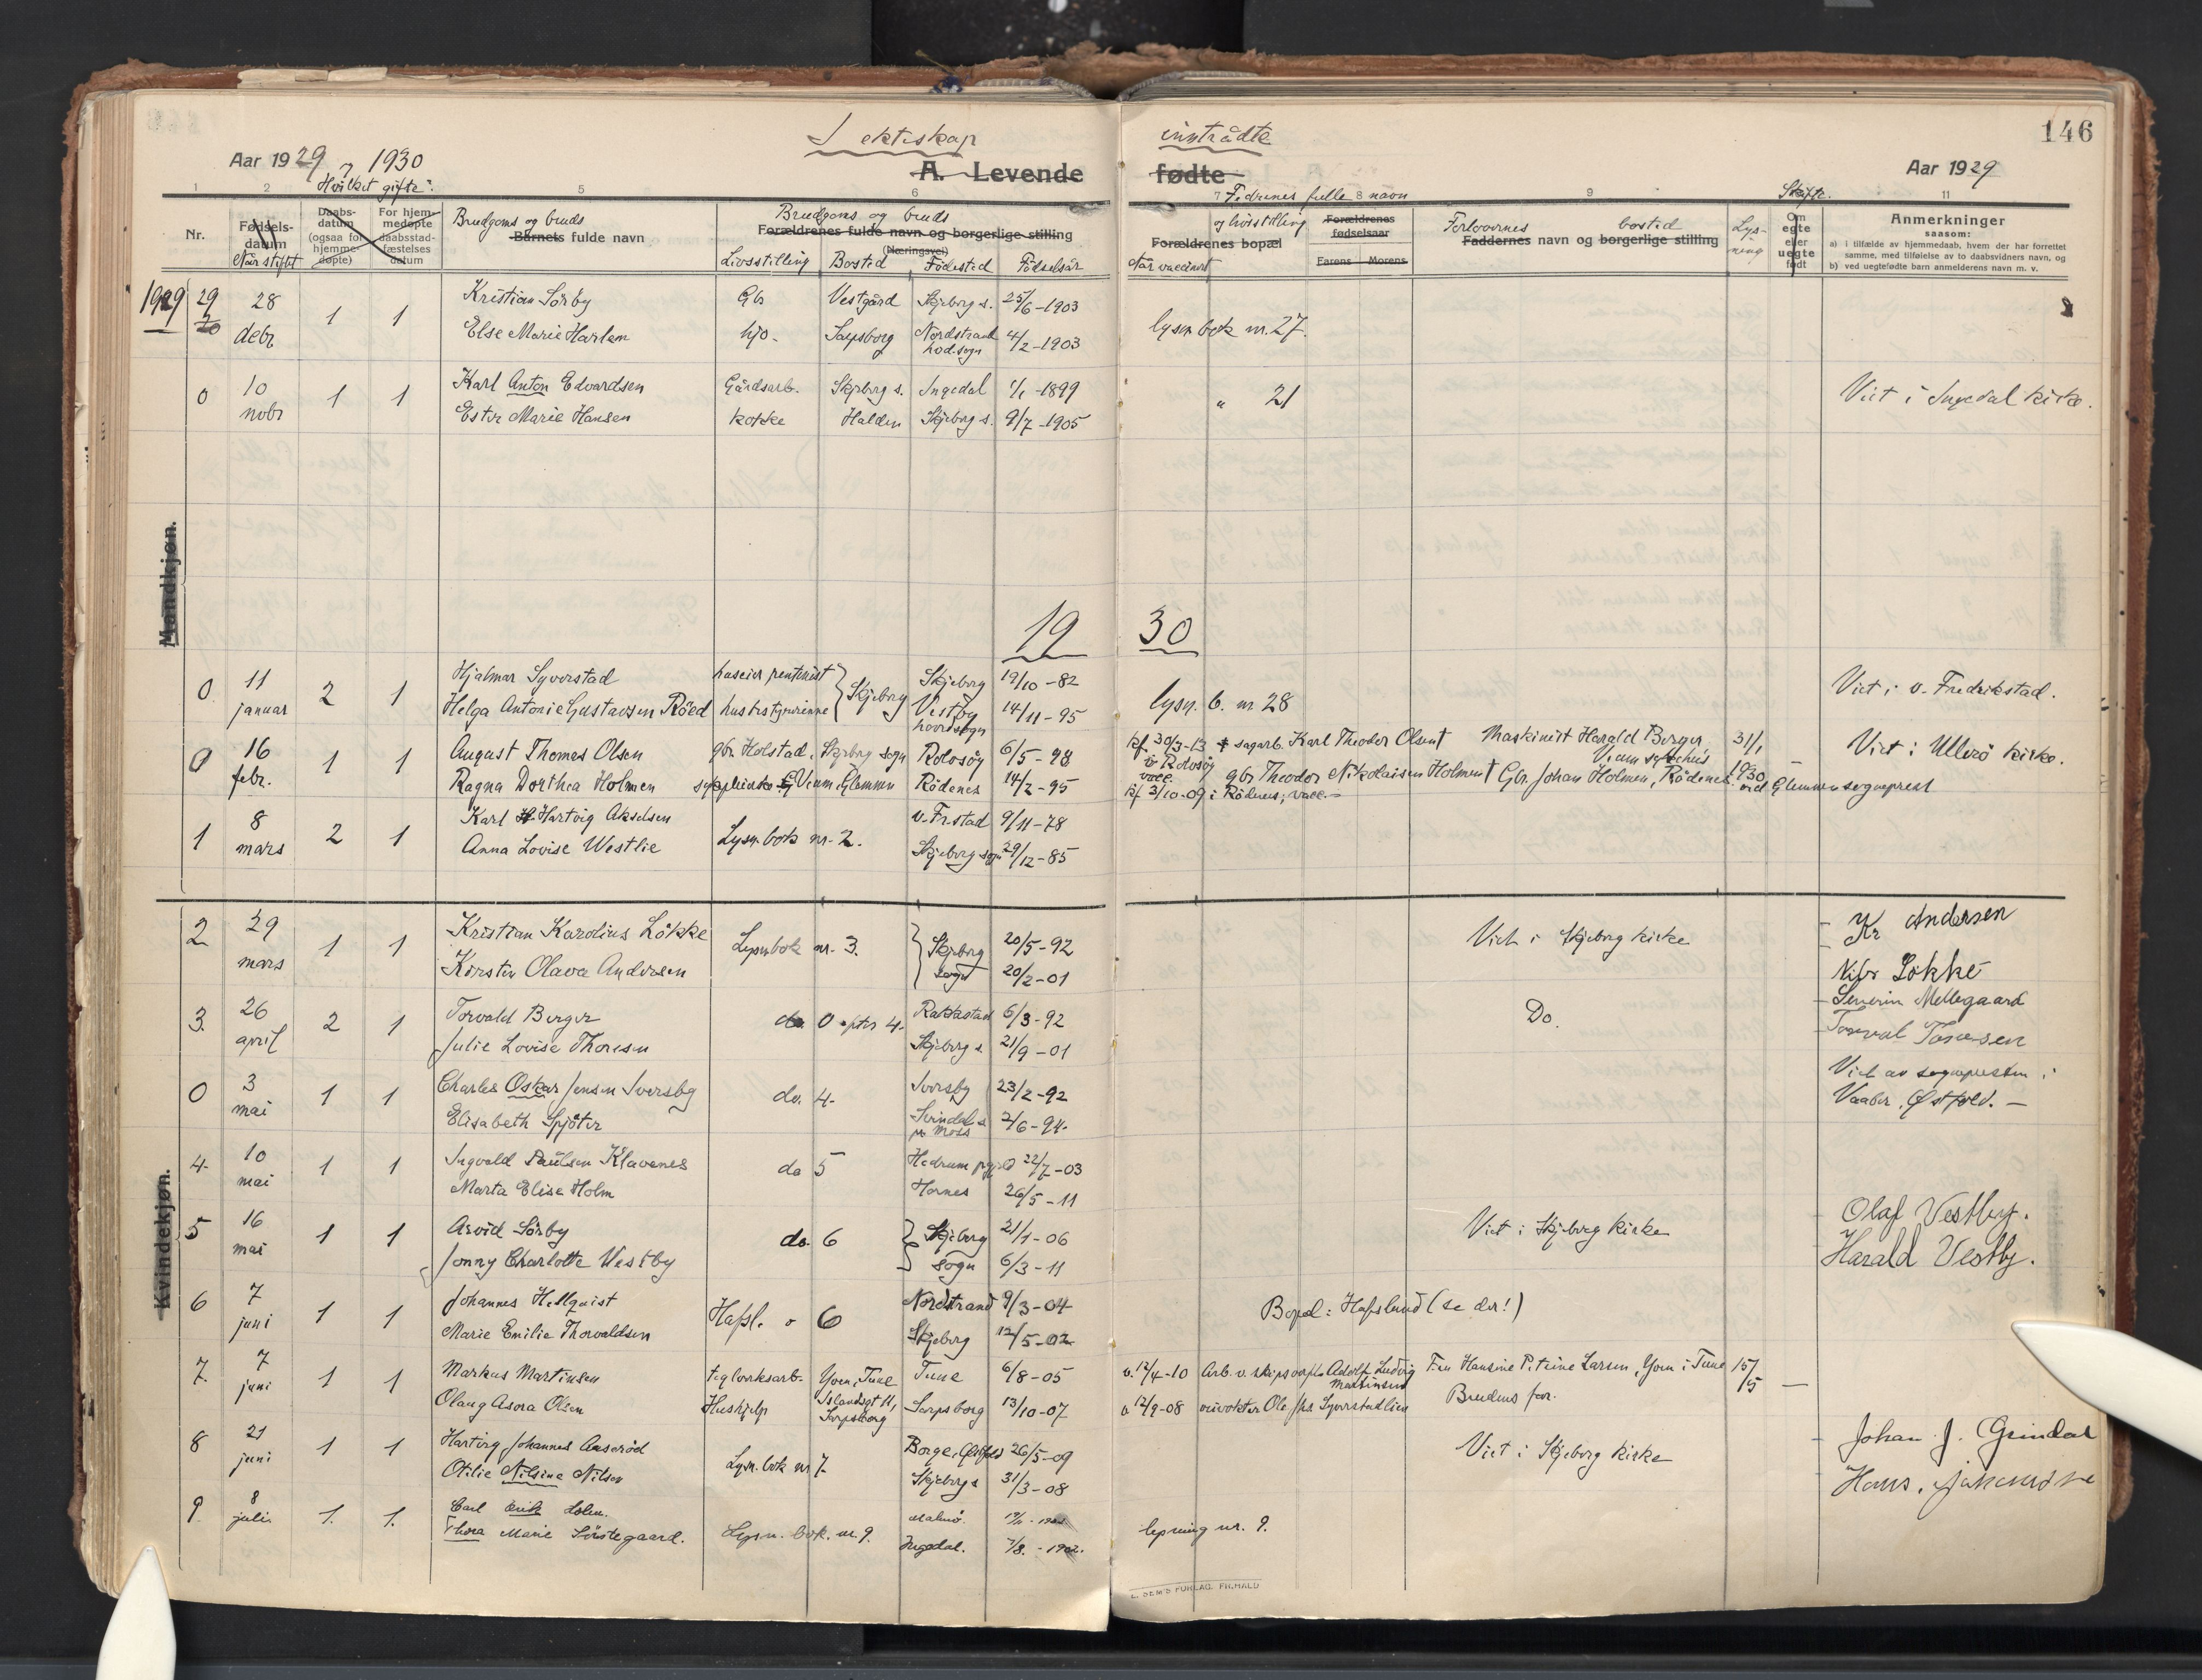 I ektiskap inntrådte
146
Aar 1929, 1930
Aar 1929
A. Levende fødte
Hvilket gifte:
Fedrenes fulle navn
Skifte.
1 2 5 6 7 8 9 11
Nr.
Fødsels-datum
Når stiftet
Daabs-datum (ogsaa for hjemme-døpte)
For hjem-medøpte daabsstad-fæstelses datum
Brudgoms og bruds
Barnets fulde navn
Brudgoms og bruds
Forældrenes fulde navn og borgerlige stilling
(Næringsvei)
Livsstilling Bosted Fødested Fødselsår
og livsstilling
Forældrenes bopæl
Når vaccinert
Forældrenes fødselsaar
Farens Morens
Forlovernes bosted
Faddernes navn og borgerlige stilling
Lys-ning
Om egte eller uegte født
Anmerkninger
saasom:
a) i tilfælde av hjemmedaab, hvem der har forrettet samme, med tilføielse av to daabsvidners navn, og
b) ved uegtefødte barn anmelderens navn m. v.
Mandkjøn.
1929 29 28 debr 1 1 Kristian Sörby Gbr Vestgård Skjeberg s. 25/6-1903
Else Marie Harlem hjo- Sarpsborg Nordstrand hod.sogn 4/2-1903 lysn bok nr. 27.
0 10 nobr 1 1 Karl Anton Edvardsen Gårdsarb. Skjebrg s. Ingedal 1/1-1899 " 21 Viet i Ingedal kirke.
Ester Marie Hansen kokke Halden Skjeberg s. 9/7-1905
1930
0 11 januar 2 1 Hjalmar Syverstad Skjeberg Skjeberg 19/10-82 Viet i v. Fredrikstad.
Helga Antonie Gustavsen Röed husbestyrerinne Vestby hovedsogn 14/11-95 lysn. b. nr 28
0 16 febr. 1 1 August Thomas Olsen gbr Holstad, Skjeberg sogn Rolvsöy 6/5-98 kf 30/3-13 Rolvsöy vacc. sagarb. Karl Theodor Olsen† Maskinist Harald Berger, 31/1 1930 Viet i Ullerö kirke.
Ragna Dorthea Holmen Glemmen Rödenes 14/2-95 kf 3/10-09 i Rödenes; vacc.- gbr Theodor Nikolaisen Holmen† Gbr. Johan Holmen, Rödenes ved Glemmen sogneprest
1 8 mars 2 1 Karl Hartvig Akselsen Lysn. bok nr- 2. v. Fr.stad 9/11-78
Anna Lovise Westlie Skjeberg sogn 29/12-85
Kvindekjøn.
2 29 mars 1 1 Kristian Karolius Lökke Lysnbok nr- 3. Skjeberg sogn 20/5-92 Viet i Skjeberg kirke Kr Andersen
Kirsten Olava Andersen 20/2-01 Lökke
3. 26 april 2 1 Torvald Berger Rakkestad 6/3-92 Do. Severin Mellegaard
Julie Lovise Thoresen Skjeberg s 21/9-01 Toresen
0 3 mai 1 1 Charles Oskar Jensen Iversby do. 4- Iversby 23/2-92 Viet av sognepresten i
Elisabeth Spjöter Svindal s pr Moss 2/6-94- Vaaler. Østfold.-
4- 10 mai 1 1 Ingvald Paulsen Klavenes do 5 Hedrum prgjeld 22/7-03
Marta Elise Holm Hornes 26/5-11
5 16 mai 1 1 Arvid Sörby do. 6 Skjeberg sogn 21/1-06 Viet i Skjeberg kirke Olaf Vestby.
Jonny Charlotte Westby 6/3-11 Harald Vestby.
6 7 juni 1 1 Johannes Hellquist Hafsl. 6 Nordstrand 9/3-04 Boped: Hafslund (se der!)
Marie Emilie Thorvaldsen Skjeberg 12/5-02
7. 7 juni 1 1 Markus Martinsen teglverksarb- Yven, Tune Tune 6/8-05 v. 12/4-10 Adolf Ludvig Martinsen Fru Hansine Petrine Larsen, Yven i Tune 15/5 -
Olaug Asora Olsen Hushjelp Islandsgt 11, Sarpsborg Sarpsborg 13/10-07 v 12/9-08 Brudens far.
8 21 juni 1 1 Hartvig Johannes Lysn. bok nr 7- Borge, Østfold 26/5-09 Viet i Skjeberg kirke Johan J. Grindal
Otilie Nilsine Nilsen Skjeberg s 31/3-08 Hans
9. 8 juli 1. 1. Carl Erik Holm. Lysn. bok. nr. 9. Malmö. lysning nr. 9.
Thora Marie Sörstegaard. Ingedal. 7/8.-1902.
E. SEM'S FORLAG, FR.HALD